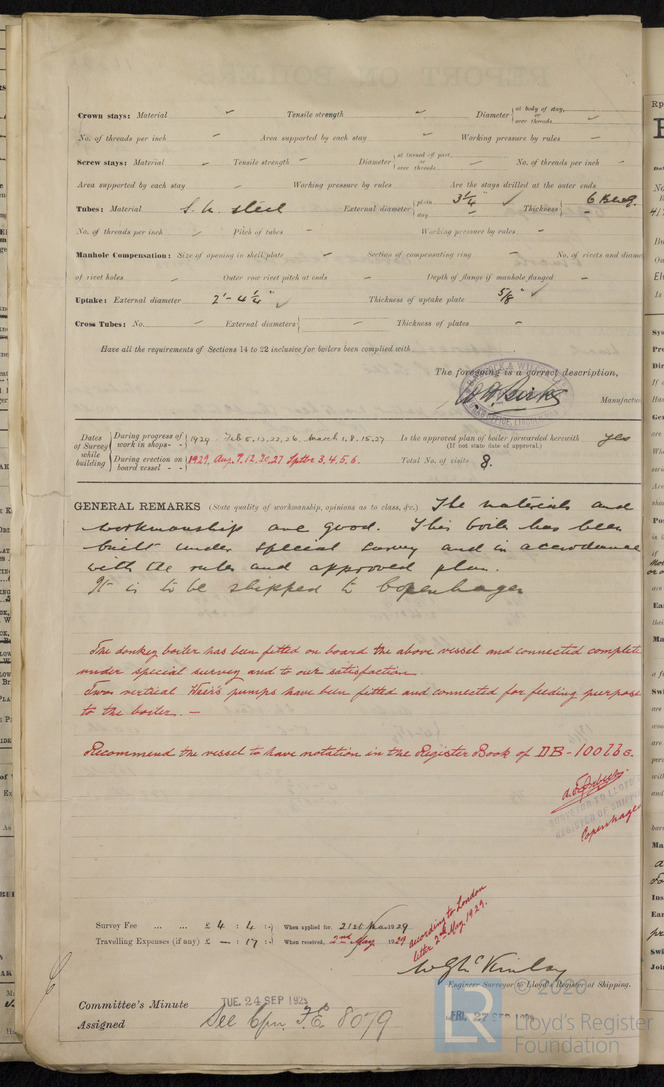 Crown stays: Material – Tensile strength – Diameter { at body of stay, or over threads –
No. of threads per inch – Area supported by each stay – Working pressure by rules –
Screw stays: Material – Tensile strength – Diameter { at turned off part, or over threads – No. of threads per inch –
Area supported by each stay – Working pressure by rules – Are the stays drilled at the outer ends –
Tubes: Material S. h. steel External diameter { plain 3 1/4" ✓ stay – Thickness { 6 B.w.g. –
No. of threads per inch – Pitch of tubes – Working pressure by rules –
Manhole Compensation: Size of opening in shell plate – Section of compensating ring – No. of rivets and diame
of rivet holes – Outer row rivet pitch at ends – Depth of flange if manhole flanged –
Uptake: External diameter 2'-4 1/4" ✓ Thickness of uptake plate 5/8" ✓
Cross Tubes: No. – External diameters { – Thickness of plates –
Have all the requirements of Sections 14 to 22 inclusive for boilers been complied with
The foregoing is a correct description,
Manufactu
Dates of Survey while building { During progress of work in shops - - { 1929 Feb 5,12,22,26, March 1,8,15,27 Is the approved plan of boiler forwarded herewith yes
(If not state date of approval.)
During erection on board vessel - - { 1929, Aug. 9,12,20,27 Septbr 3,4,5,6. Total No. of visits 8.
GENERAL REMARKS (State quality of workmanship, opinions as to class, &c.) The materials and
workmanship are good. This boiler has been
built under special survey and in accordance
with the rules and approved plan.
It is to be shipped to Copenhagen
The donkey boiler has been fitted on board the above vessel and connected complete
under special survey and to our satisfaction.
Two vertical Weir's pumps have been fitted and connected for feeding purpose
to the boiler. –
Recommend the vessel to have notation in the Register Book of DB-100 lbs.
SURVEYOR TO LLOYD'S
REGISTER OF SHIPPING
Copenhagen
Survey Fee ... ... £ 4 : 4 : When applied for, 21st 1929
Travelling Expenses (if any) £ – : 17 : When received, 2nd May 1929
according to London
letter 2nd May 1929.
Engineer Surveyor to Lloyd's Register of Shipping.
Committee's Minute TUE. 24 SEP 1929 FRI. 27 SEP 1929
Assigned See Cpn. F.E. 8079
LR © 2020
Lloyd's Register
Foundation